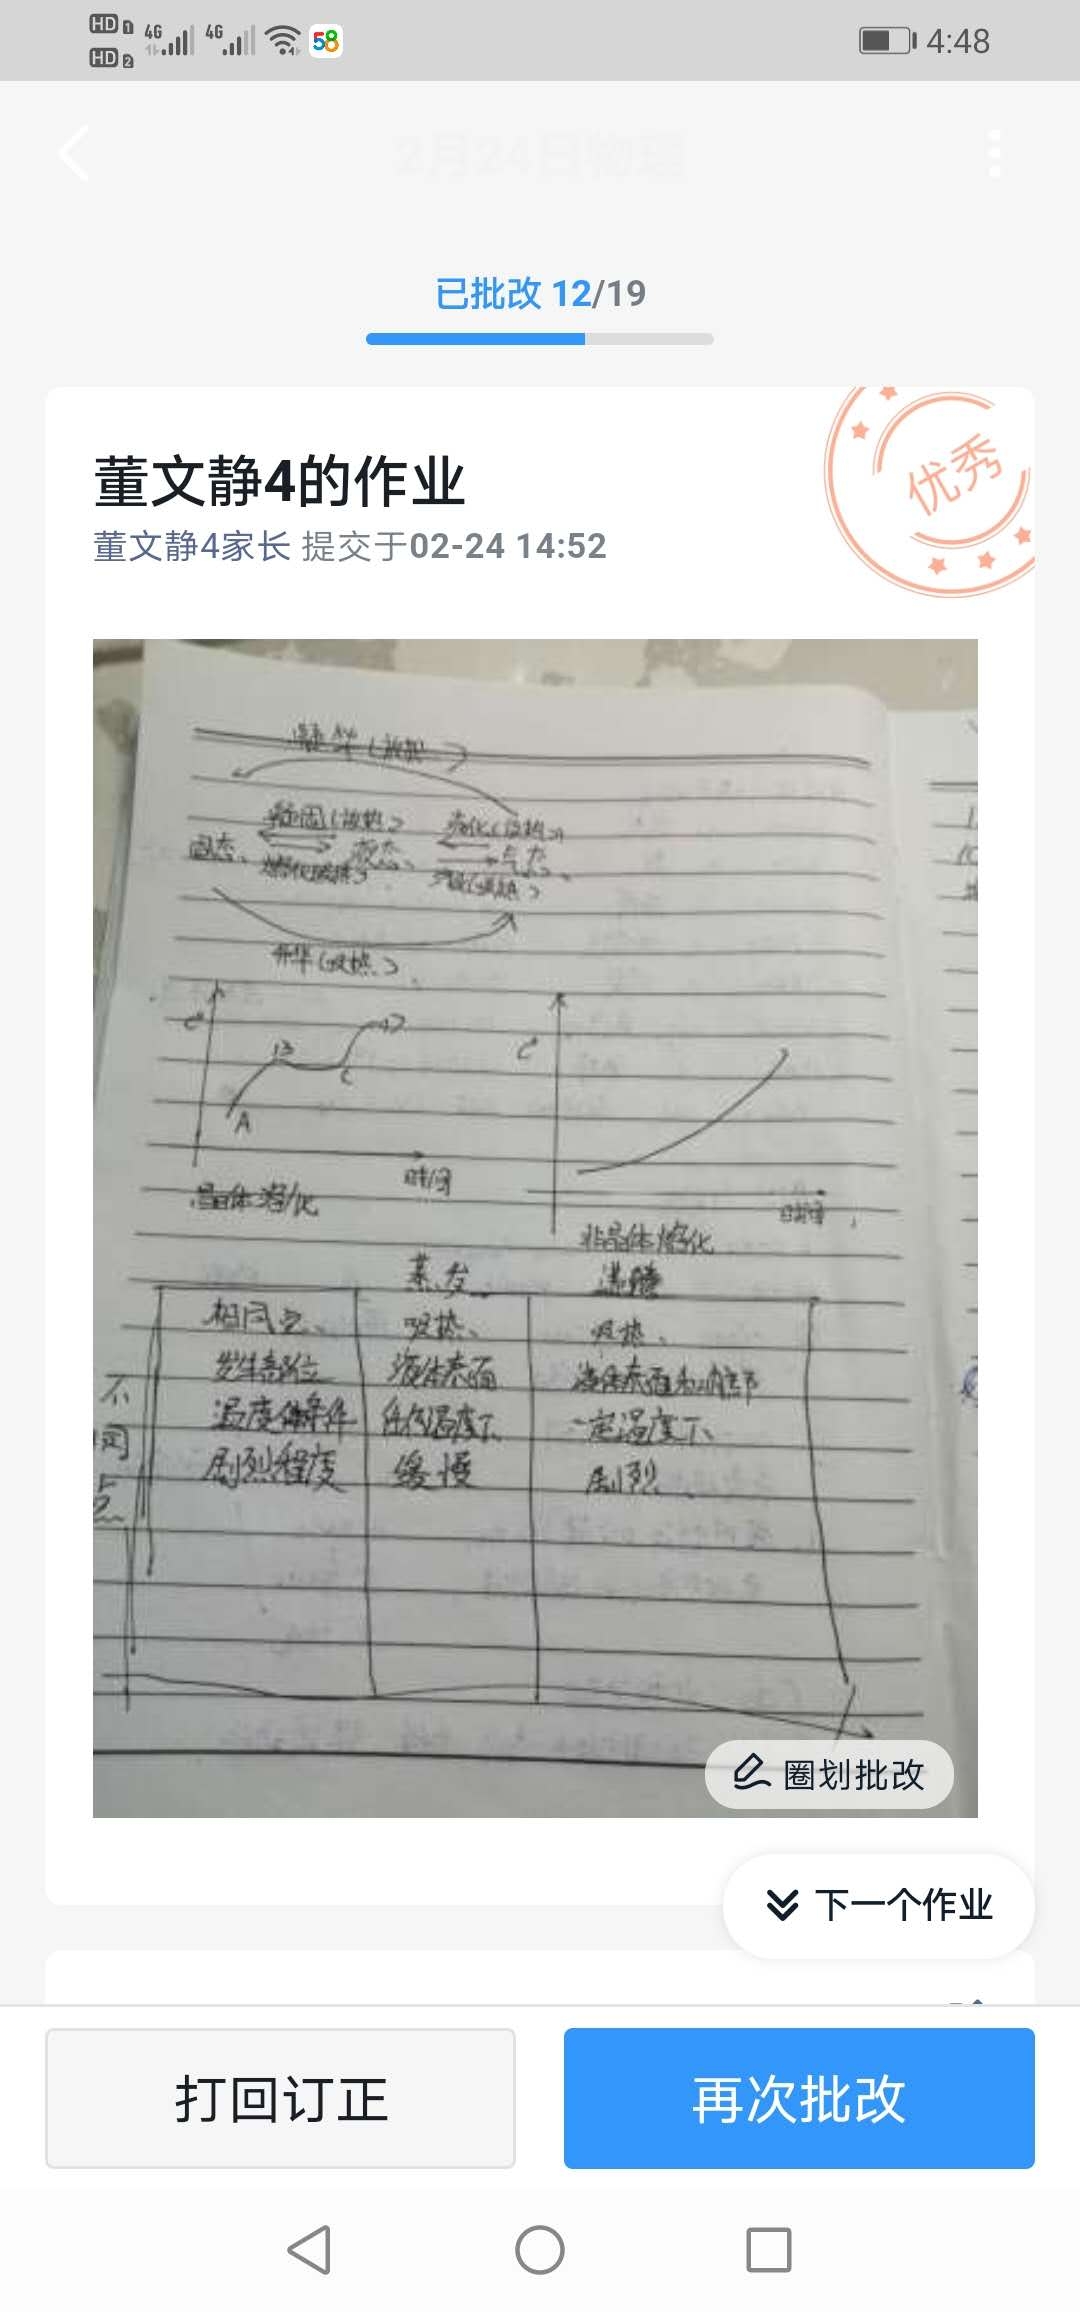 HD 1 4G 4G 58 4:48
HD 2
2月24日物理
已批改 12/19
优秀
董文静4的作业
董文静4家长 提交于02-24 14:52
凝华(放热)
凝固(放热) 液化(放热)
固态、 液态、 气态、
熔化(吸热) 汽化(吸热)
升华(吸热)
B D
C
A
时间
晶体熔化
时间
非晶体熔化
蒸发 沸腾
相同点、 吸热、 吸热、
发生部位 液体表面 液体表面和内部
不 温度条件 任何温度下 一定温度下
同 剧烈程度 缓慢 剧烈
点
圈划批改
下一个作业
打回订正 再次批改